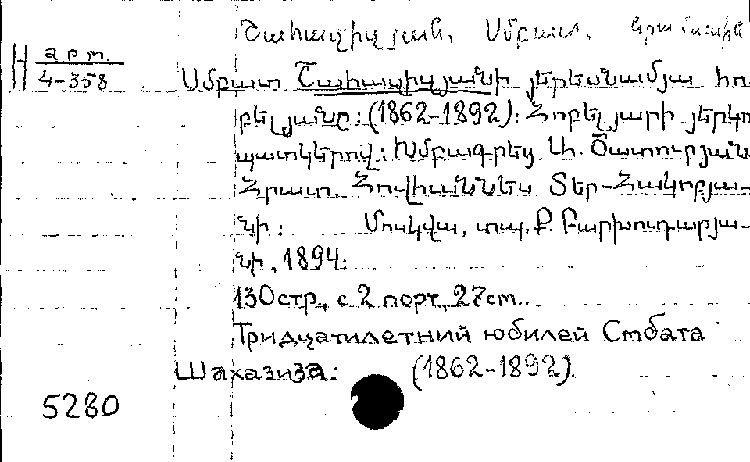 Շահազիզյան, Սմբատ.
Н арт. 4-358
Սմբատ Շահազիզյանի յերեսնամյա հո-
բելյանը: (1862-1892): Հոբելյարի յերկու
պատկերով: Խմբագրեց Ա. Ծատուրյան
Հրատ. Հովհաննես Տեր-Հակոբյա-
նի: Մոսկվա, տպ. Ք. Բարխուդարյա-
նի, 1894:
130 стр., с 2 порт. 27 cm.
Тридцатилетний юбилей Смбата
Шахазиза: (1862-1892)
5280